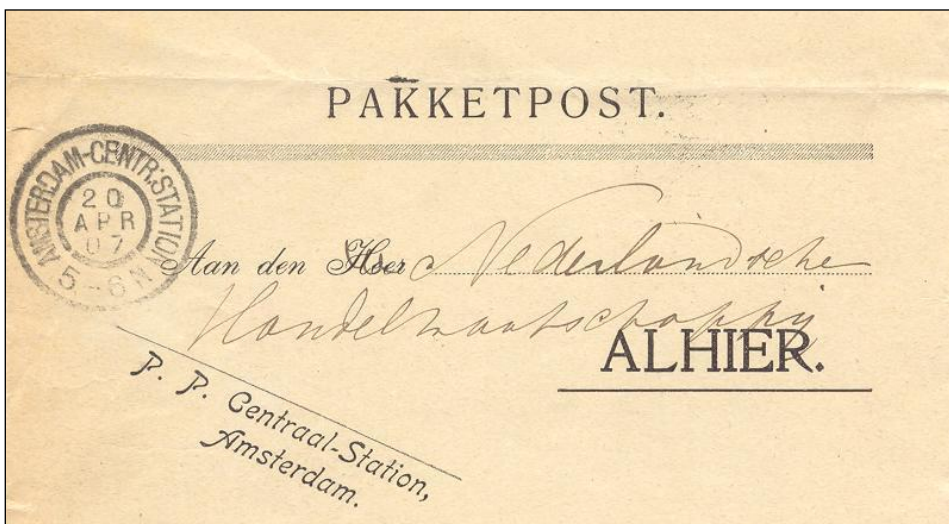 PAKKETPOST.
AMSTERDAM-CENTR:STATION
20
APR
07
5-6N
Aan den Heer Nederlandsche
Handelmaatschappij
ALHIER.
P. P. Centraal-Station,
Amsterdam.